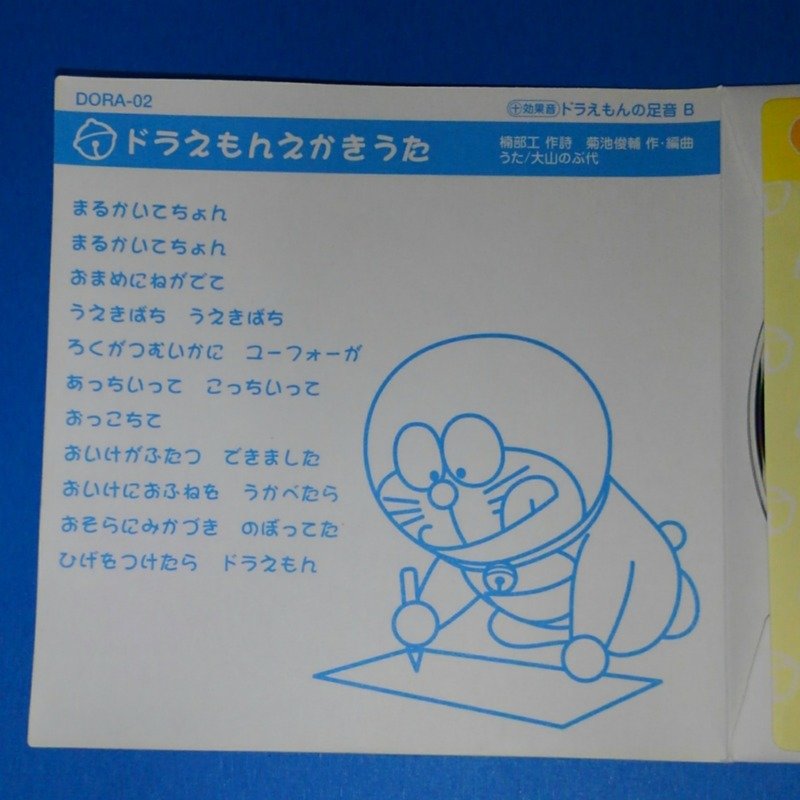 DORA-02
⊕効果音 ドラえもんの足音 B
ドラえもんえかきうた
楠部工 作詩 菊池俊輔 作・編曲
うた/大山のぶ代
まるかいてちょん
まるかいてちょん
おまめにねがでて
うえきばち うえきばち
ろくがつむいかに ユーフォーが
あっちいって こっちいって
おっこちて
おいけがふたつ できました
おいけにおふねを うかべたら
おそらにみかづき のぼってた
ひげをつけたら ドラえもん